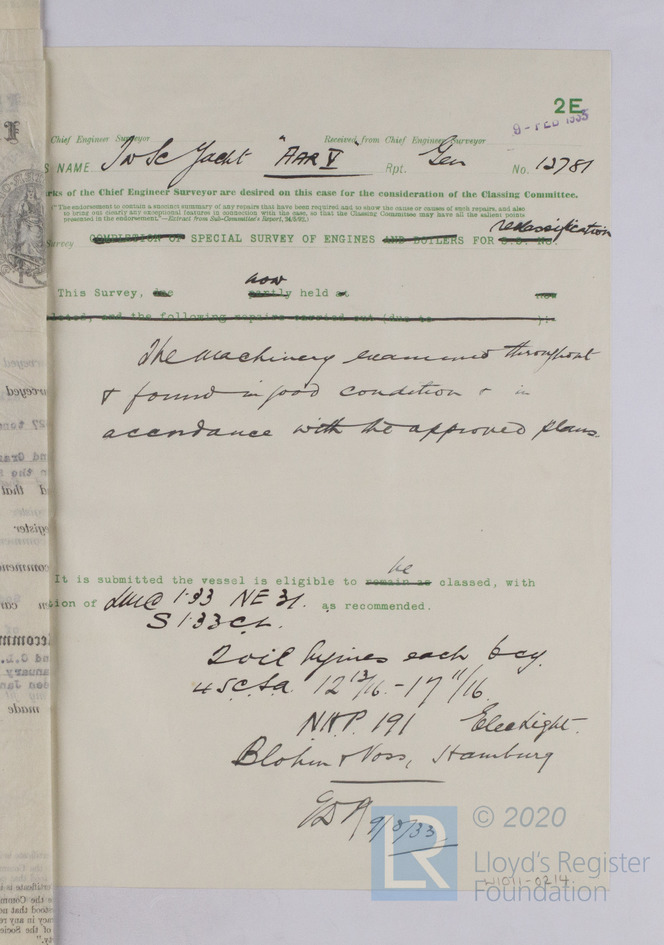 2E
9 - FEB 1933
Chief Engineer Surveyor Received from Chief Engineer Surveyor
S NAME Tw Sc Yacht "AAR V" Rpt. Gen No. 12781
rks of the Chief Engineer Surveyor are desired on this case for the consideration of the Classing Committee.
("The endorsement to contain a succinct summary of any repairs that have been required and to show the cause or causes of such repairs, and also
to bring out clearly any exceptional features in connection with the case, so that the Classing Committee may have all the salient points
presented in the endorsement."—Extract from Sub-Committee's Report,
reclassification
Survey COMPLETION OF SPECIAL SURVEY OF ENGINES AND BOILERS FOR S.S. No.
now
This Survey, due partly held at now
pleted, and the following repairs carried out (due to ):
The machinery examined throughout
& found in good condition & in
accordance with the approved plans.
be
It is submitted the vessel is eligible to remain as classed, with
tion of LMC 1.33 NE 31. as recommended.
S 1.33 CL.
2 oil Engines each 6 cy.
4 S.C.SA. 12 13/16 - 17 11/16
NHP. 191 Elec Light.
Blohm & Voss, Hamburg
9/3/33
LR
© 2020
Lloyd's Register
Foundation
W1011-0214